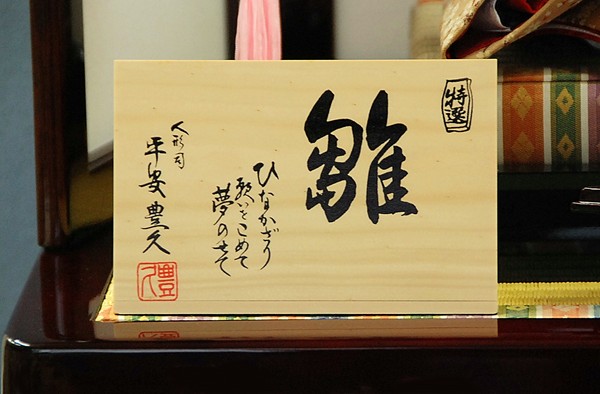 特選
雛
ひなかざり
願いをこめて
夢のせて
人形司
平安豊久
豊久